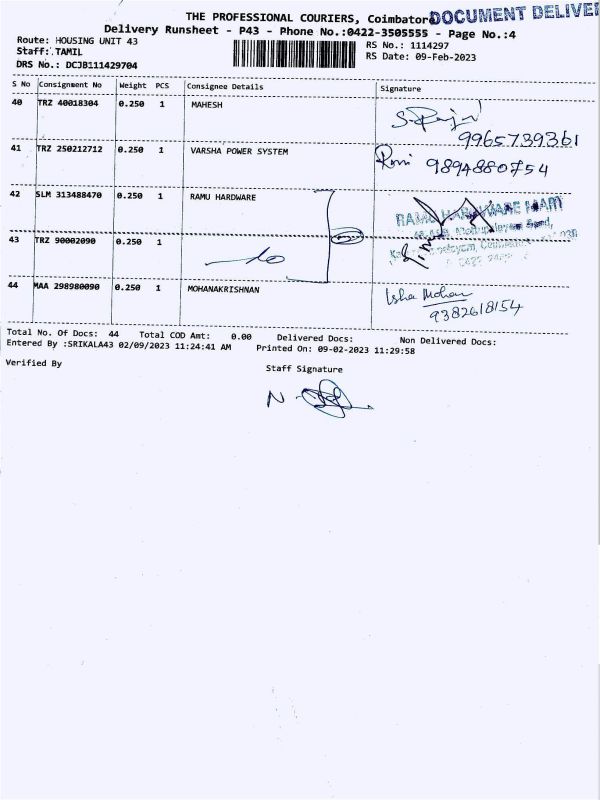 THE PROFESSIONAL COURIERS, Coimbatore
DOCUMENT DELIVE
Delivery Runsheet - P43 - Phone No.:0422-3505555 - Page No.:4
Route: HOUSING UNIT 43
RS No.: 1114297
Staff: TAMIL
RS Date: 09-Feb-2023
DRS No.: DCJB111429704
S No Consignment No Weight PCS Consignee Details Signature
40 TRZ 40018304 0.250 1 MAHESH
9965739361
41 TRZ 250212712 0.250 1 VARSHA POWER SYSTEM
9894880754
42 SLM 313488470 0.250 1 RAMU HARDWARE
RAMU HARDWARE MART
43 TRZ 90002090 0.250 1
44 MAA 298980090 0.250 1 MOHANAKRISHNAN
Isha Mohan
9382618154
Total No. Of Docs: 44 Total COD Amt: 0.00 Delivered Docs: Non Delivered Docs:
Entered By :SRIKALA43 02/09/2023 11:24:41 AM Printed On: 09-02-2023 11:29:58
Verified By
Staff Signature